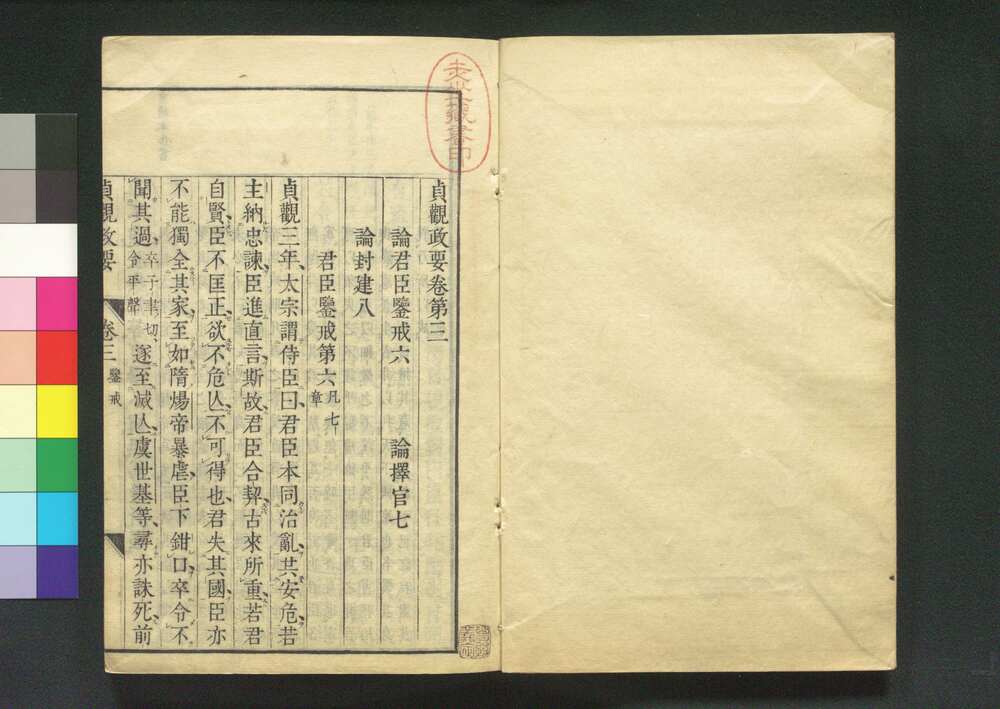 貞觀政要卷第三
論君臣鑒戒六 論擇官七
論封建八
君臣鑒戒第六 凡七章
貞觀三年太宗謂侍臣曰君臣本同治亂共安危若
主納忠諫臣進直言斯故君臣合契古來所重若君
自賢臣不匡正欲不危亾不可得也君失其國臣亦
不能獨全其家至如隋煬帝暴虐臣下鉗口卒令不
聞其過 令平聲卒子聿切 遂至滅亾虞世基等尋亦誅死前
貞觀政要 卷三 鑒戒